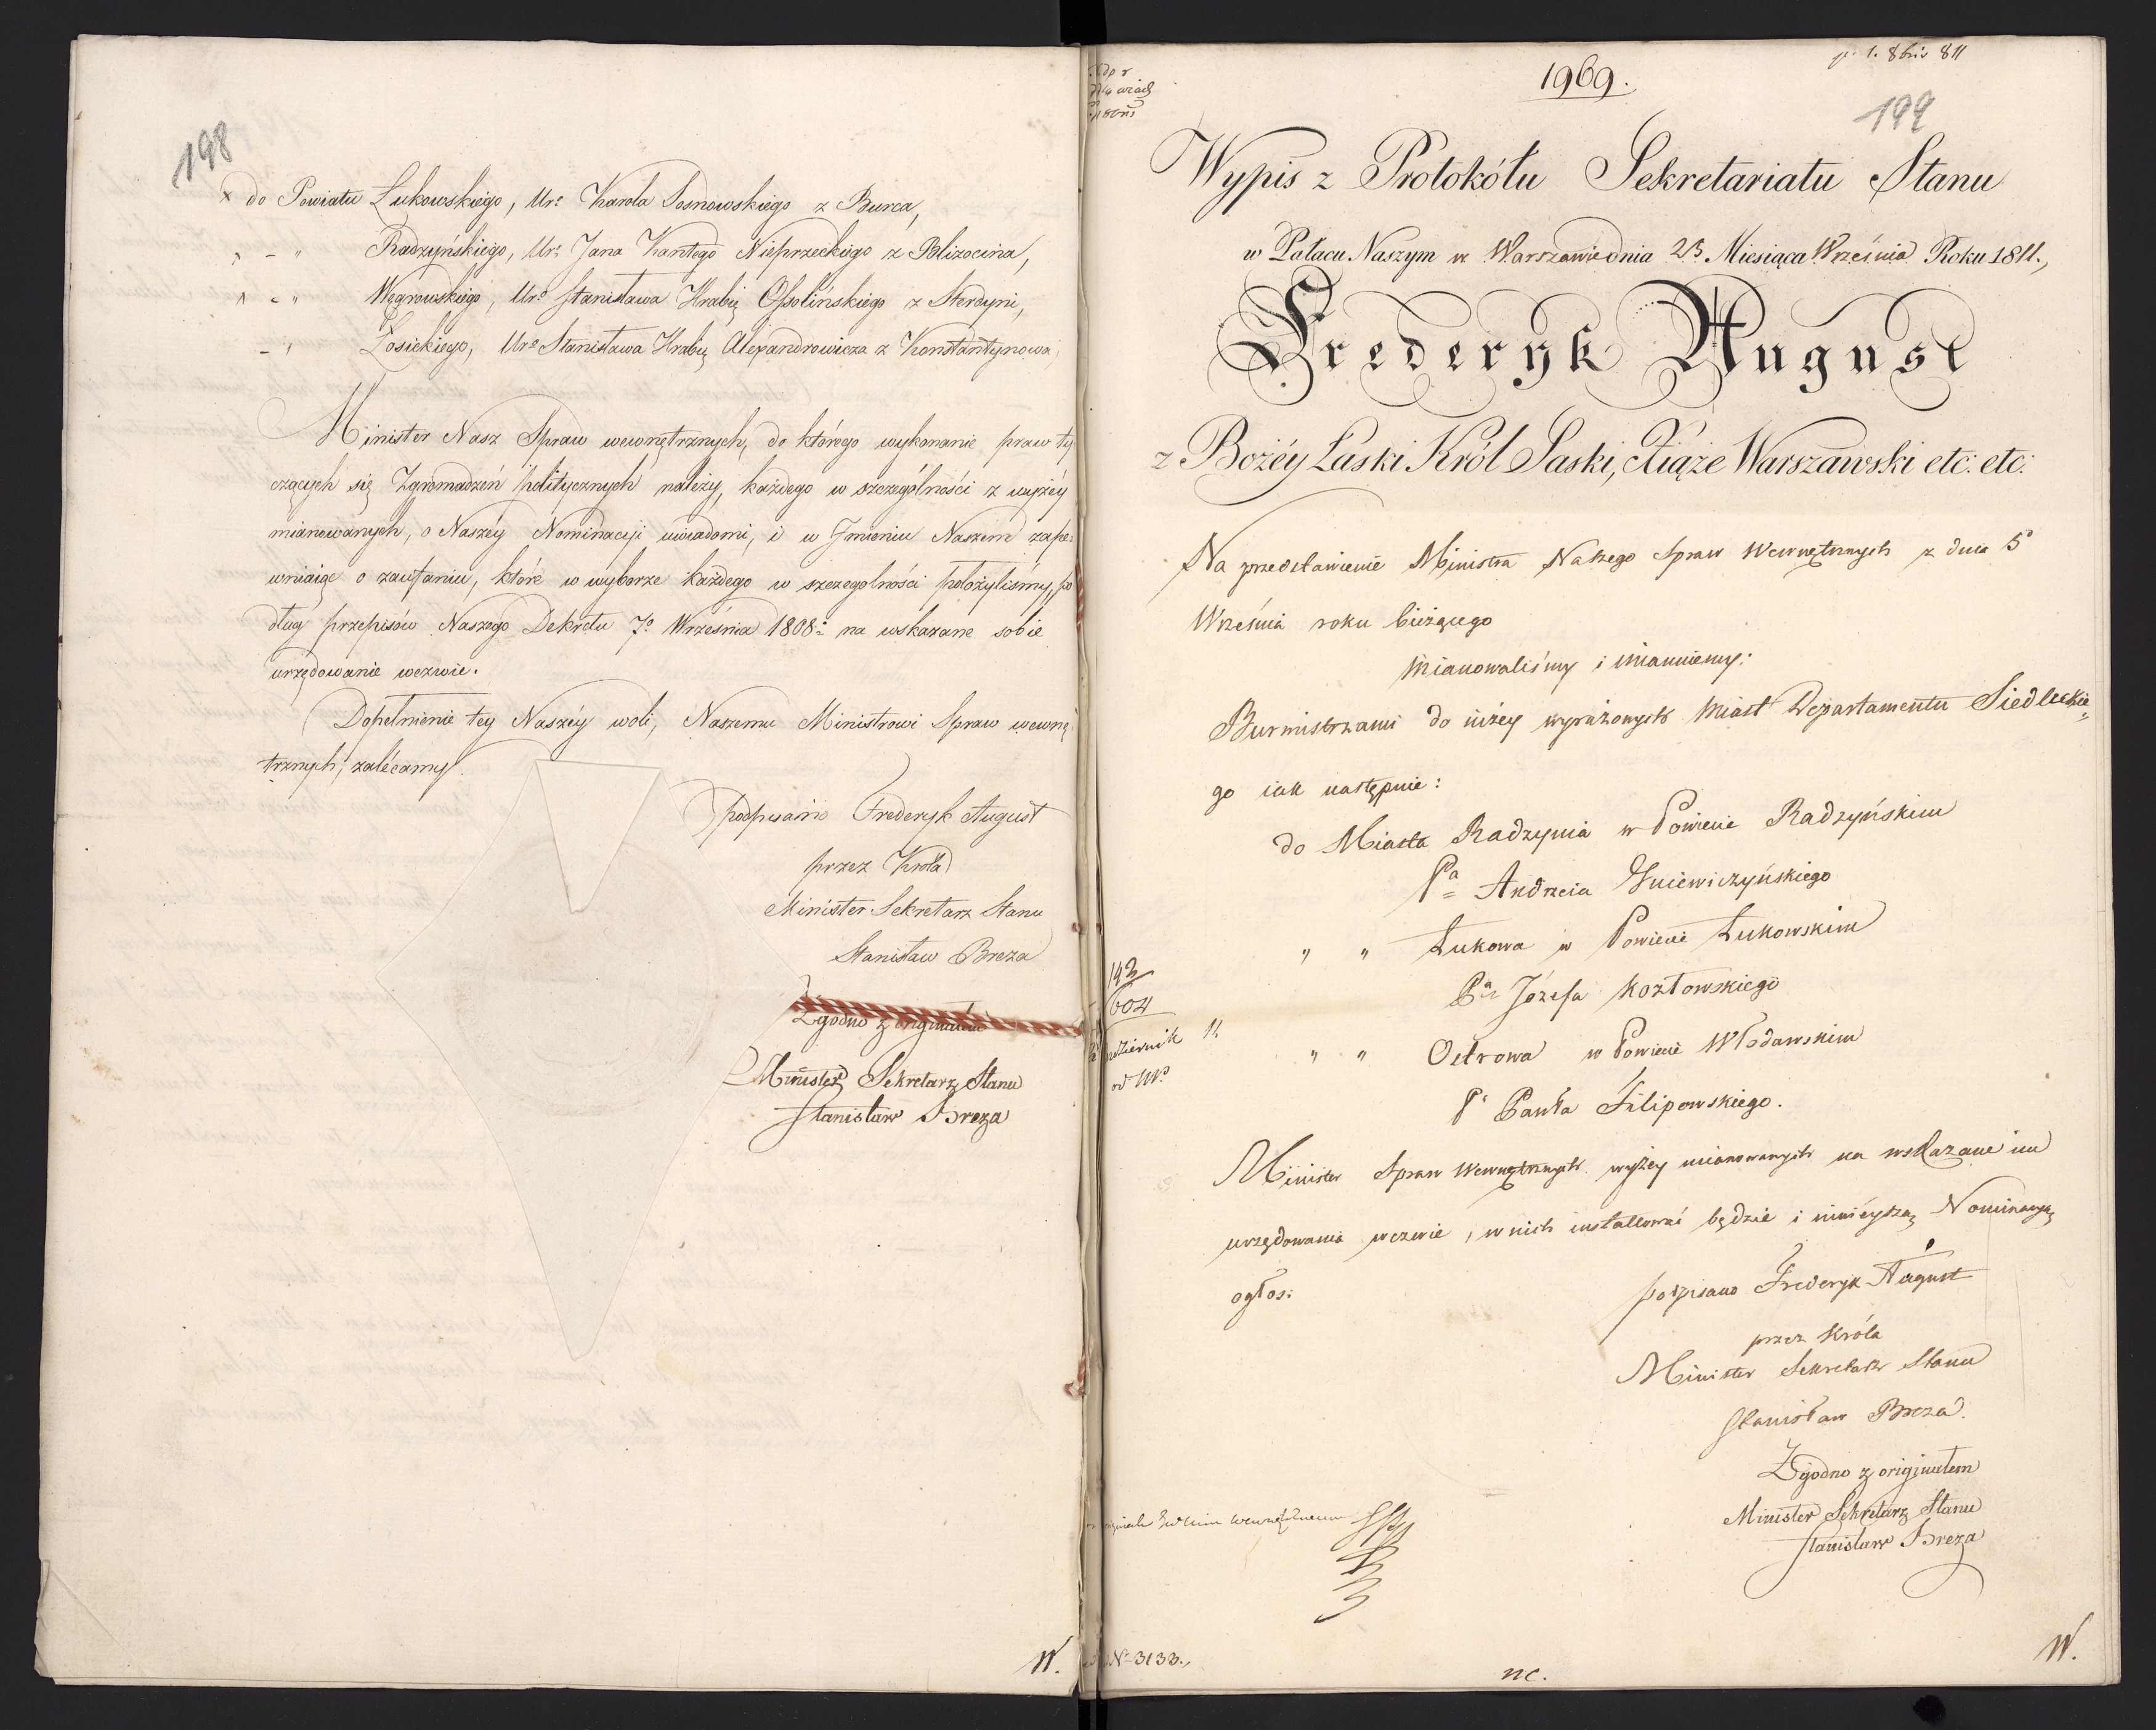 198
x do Powiatu Łukowskiego, Uro Karola Sosnowskiego z Burca,
" - " Radzyńskiego, Uro Jana Kantego Nieprzeckiego z Blizocina,
" - " Węgrowskiego, Uro Stanisława Hrabię Ossolińskiego z Sterdyni,
- " Łosickiego, Uro Stanisława Hrabię Alexandrowicza z Konstantynowa,
Minister Nasz Spraw wewnętrznych, do którego wykonanie praw ty
czących się Zgromadzeń politycznych należy, każdego w szczególności z wyżéy
mianowanych, o Naszéy Nominacyi uwiadomi, i w Jmieniu Naszém zape=
wniaiąc o zaufaniu, które w wyborze każdego w szczególności położyliśmy, po
dług przepisów Naszego Dekretu 7o Września 1808: na wskazane sobie
urzędowanie wezwie.
Dopełnienie téy Naszéy woli, Naszemu Ministrowi Spraw wewnę
trznych, zalécamy.
podpisano Frederyk August
przez Króla
Minister Sekretarz Stanu
Stanisław Breza
Zgodno z originałem
Minister Sekretarz Stanu
Stanisław Breza
W.
1969.
pr. 1. 8bris 811
199
Wypis z Protokółu Sekretariatu Stanu
w Pałacu Naszym w Warszawie dnia 23 Miesiąca Września Roku 1811.,
Frederyk August
z Bożéy Łaski Król Saski, Xiąże Warszawski etc: etc:
Na przedstawienie Ministra Naszego Spraw Wewnętrznych z dnia 5
Września roku bieżącego
mianowaliśmy i mianuiemy:
Burmistrzami do niżey wyrażonych Miast Departamentu Siedleckie=
go iak następnie:
do Miasta Radzynia w Powiecie Radzyńskim
Pa Andrzeia Gniewiczyńskiego
" " Łukowa w Powiecie Łukowskim
Pa Józefa Kozłowskiego
" " Ostrowa w Powiecie Włodawskim
P. Pawła Filipowskiego.
Minister Spraw Wewnętrznych wyżey mianowanych na wskazane im
urzędowania wezwie, w nich installować będzie i ninieyszą Nominacyą
ogłosi
podpisano Frederyk August
przez Króla
Minister Sekretarz Stanu
Stanisław Breza.
Zgodno z originałem
Minister Sekretarz Stanu
Stanisław Breza
No 3133.,
nc.
W.